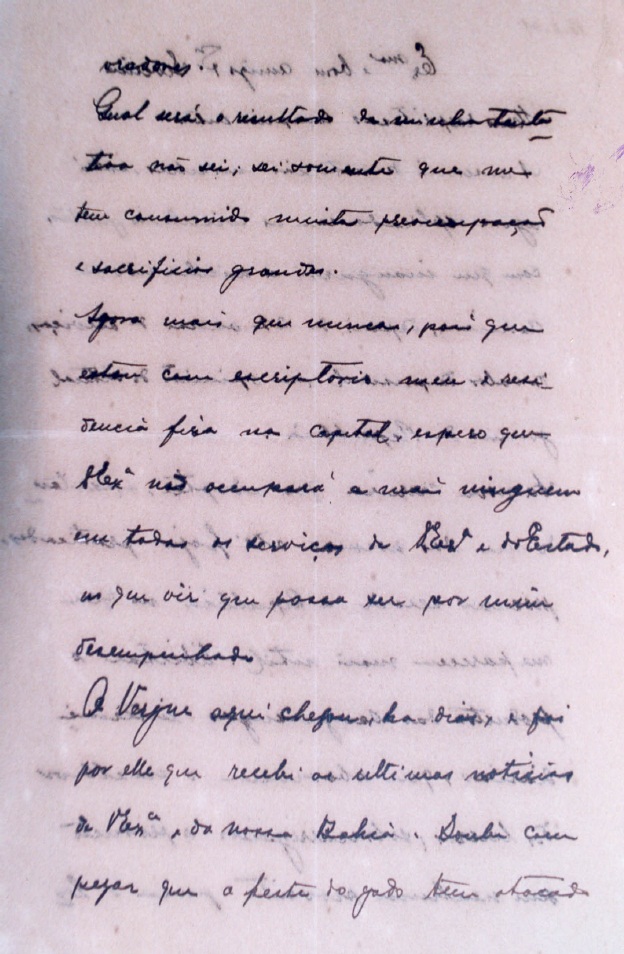 viadores.
Qual será o resultado da minha tenta
tiva não sei, sei somente que me
tem consumido muita preoccupação
e sacrificios grandes.
Agora mais que nunca, pois que
estou com escriptorio meu e resi-
dencia fixa na capital, espero que
VExª não occupará a mais ninguem
em todos os serviços de VExª e do Estado,
em que vir que possa ser por mim
desempenhado
O Vergne aqui chegou, ha dias, e foi
por elle que recebi as ultimas noticias
de VExª e da nossa Bahia. Soube com
pezar que a peste do gado tem atacado